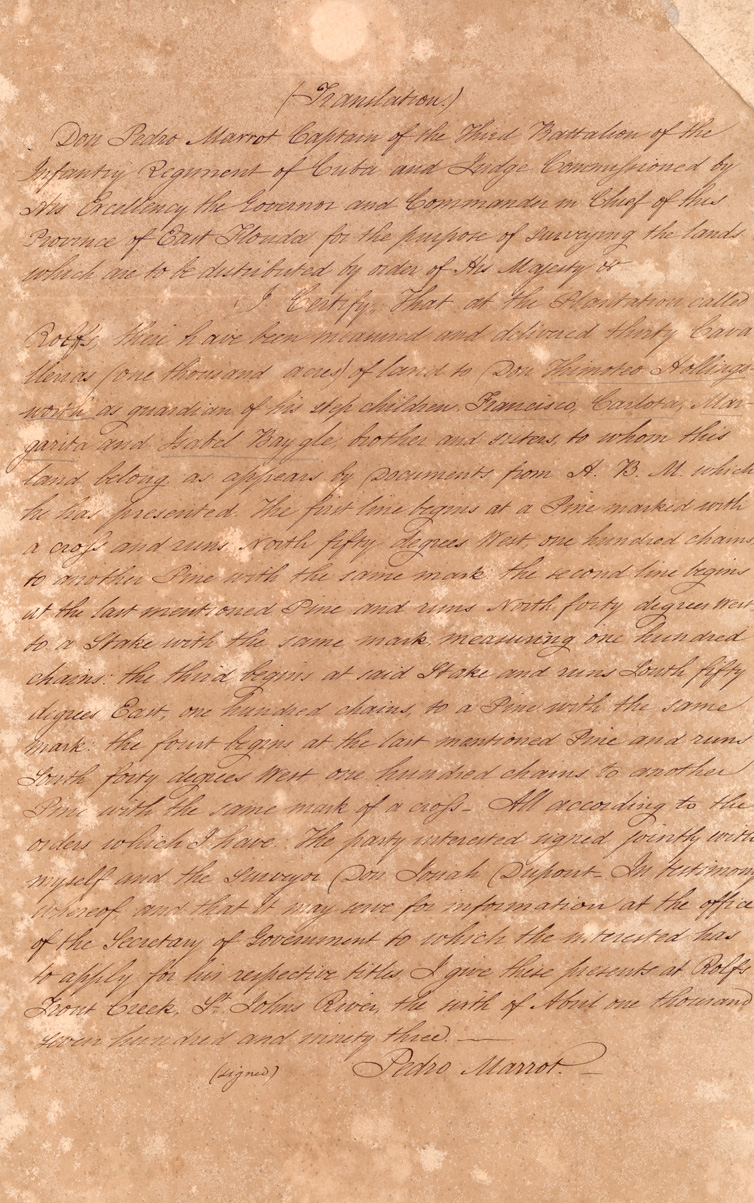 (Translation.)
Don Pedro Marrot Captain of the Third Battalion of the
Infantry Regiment of Cuba and Judge Commissioned by
His Excellency the Governor and Commander in Chief of this
Province of East Florida for the purpose of surveying the lands
which are to be distributed by order of His Majesty &c
I Certify That at the Plantation called
Rolfs, there have been measured and delivered thirty Cava
llerias (one thousand acres) of land to Don Thimoteo Hollings-
worth as guardian of his step children Francisco, Carlota, Mar-
garita and Isabel Baygle, brother and sisters, to whom this
land belong as appears by Documents from H. B. M. which
he has presented. The first line begins at a Pine marked with
a cross and runs North fifty degrees West, one hundred chains,
to another Pine with the same mark the second line begins
at the last mentioned Pine and runs North forty degrees West
to a Stake with the same mark measuring one hundred
chains: the third begins at said Stake and runs South fifty
degrees East, one hundred chains, to a Pine with the same
mark: the fourt begins at the last mentioned Pine and runs
South forty degrees West one hundred chains to another
Pine with the same mark of a cross_ All according to the
orders which I have. The party interested signed jointly with
myself and the surveyor Don Josiah Dupont_ In testimony
whereof and that it may serve for information at the office
of the Secretary of Government to which the interested has
to apply for his respective titles I give these presents at Rolfs
Trout Creek, St. Johns River, the sixth of Abril one thousand
seven hundred and ninety three. —
(signed) Pedro Marrot. _